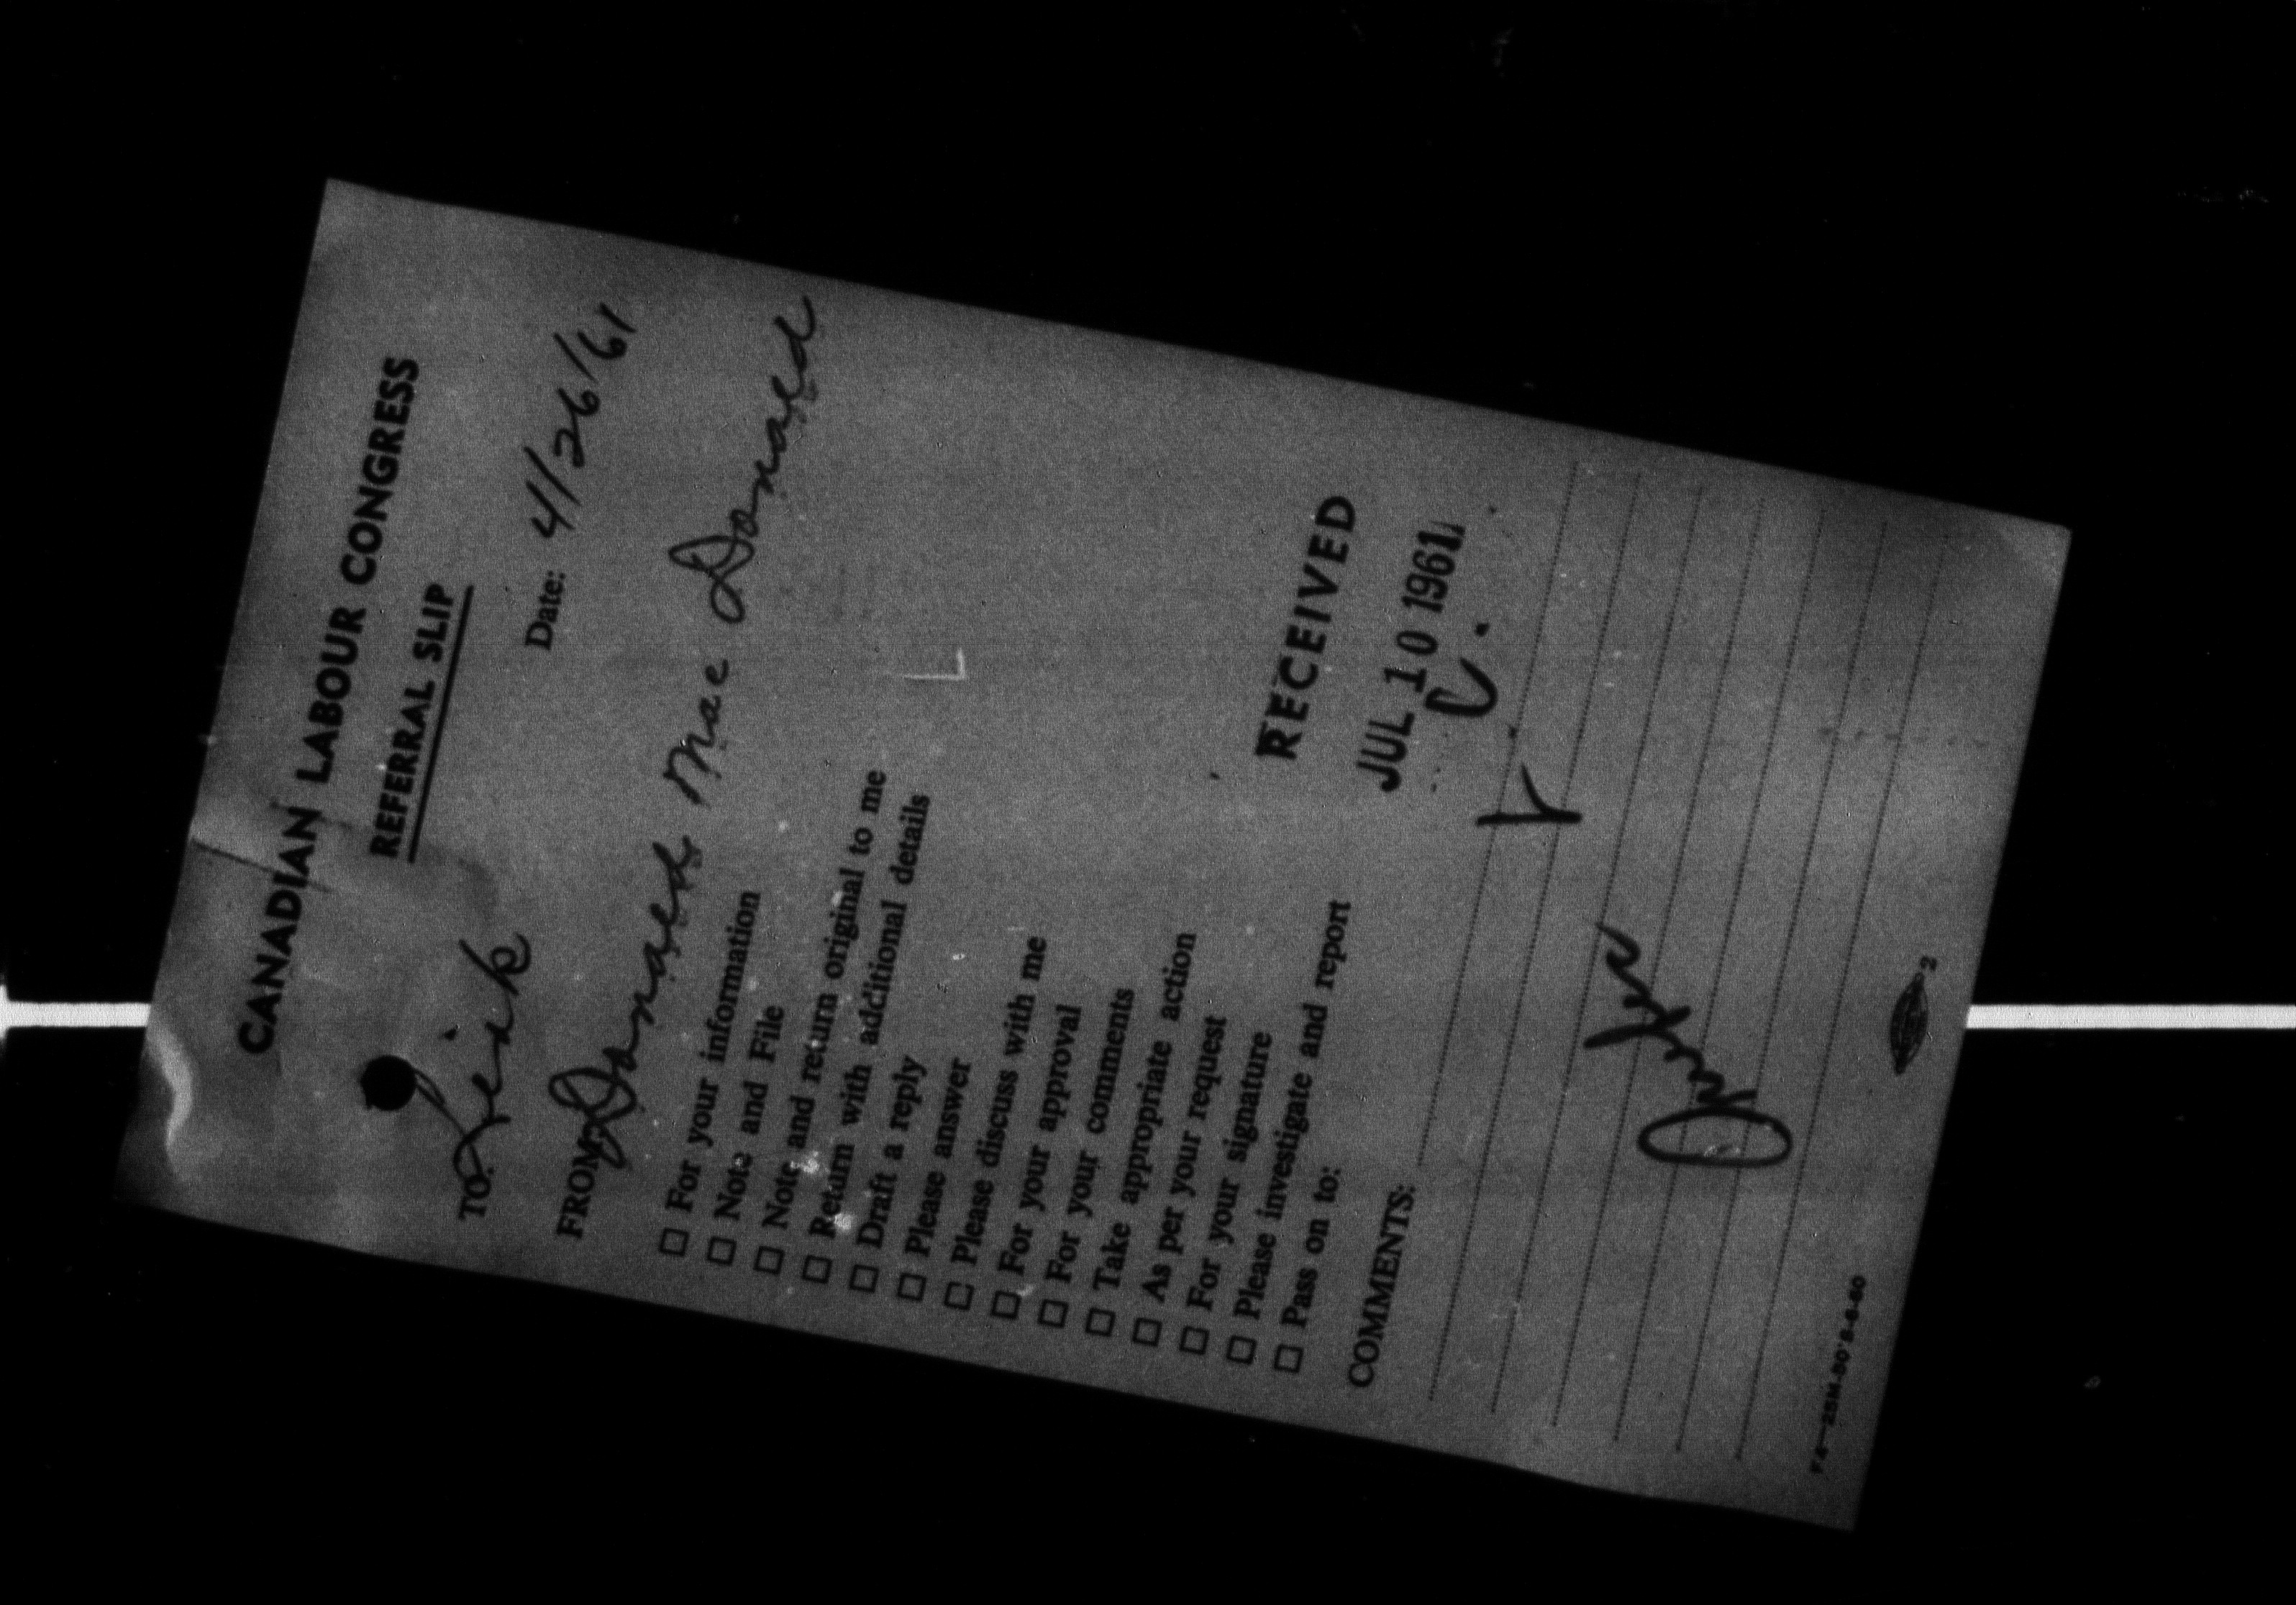 CANADIAN LABOUR CONGRESS
REFERRAL SLIP
Date: 4/26/61
TO:
FROM: Donald MacDonald
☐ For your information
☐ Note and File
☐ Note and return original to me
☐ Return with additional details
☐ Draft a reply
☐ Please answer
☐ Please discuss with me
☐ For your approval
☐ For your comments
☐ Take appropriate action
☐ As per your request
☐ For your signature
☐ Please investigate and report
☐ Pass on to:
RECEIVED
JUL 10 1961
COMMENTS:
2